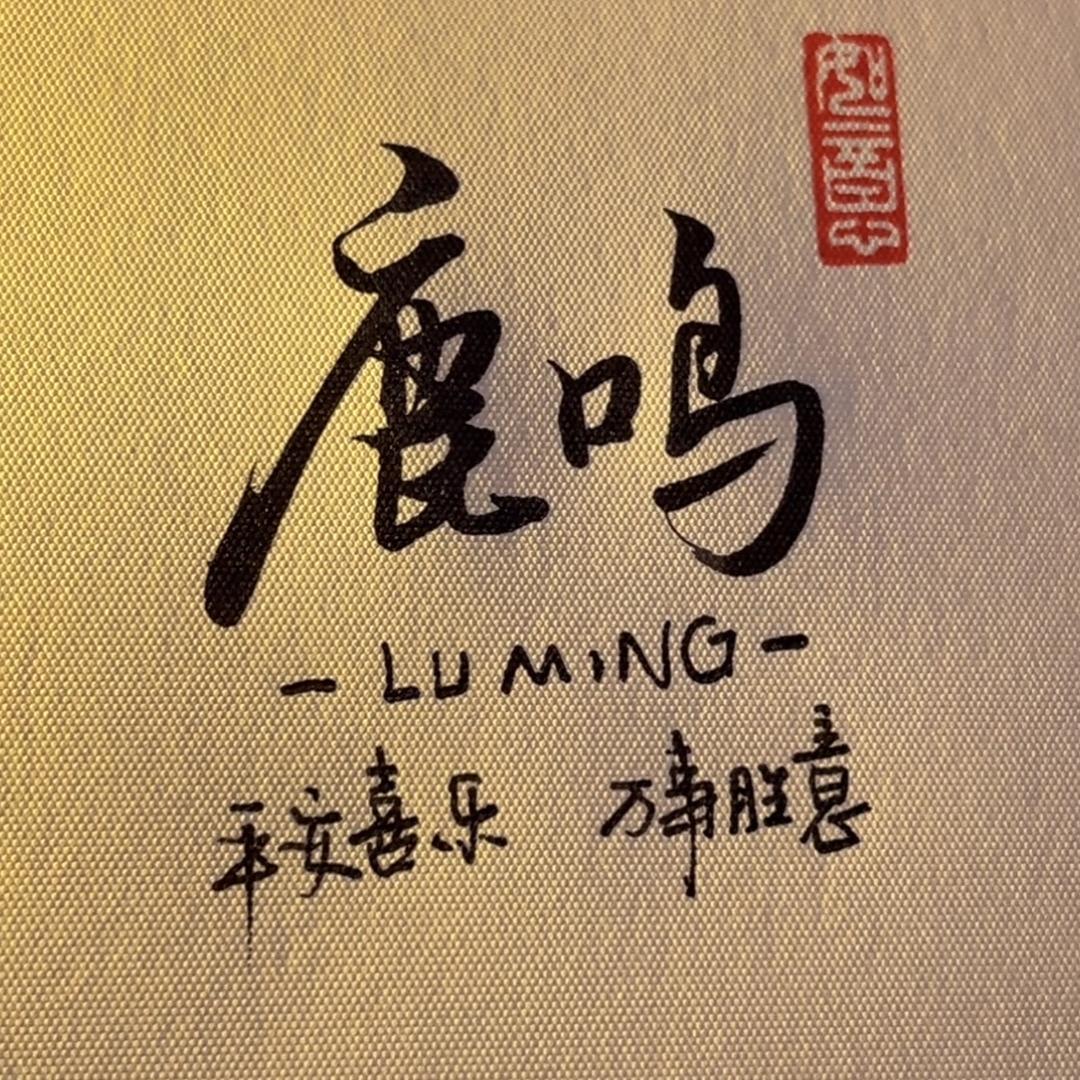 鹿鸣
- LUMING -
平安喜乐 万事胜意